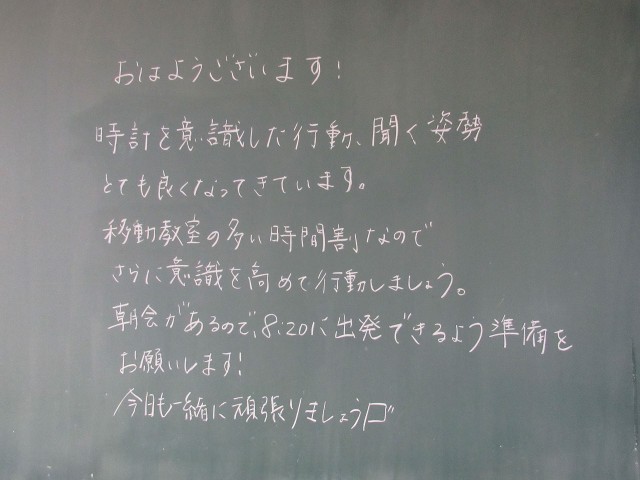 おはようございます!
時計を意識した行動、聞く姿勢
とても良くなってきています。
移動教室の多い時間割なので
さらに意識を高めて行動しましょう。
朝会があるので、8:20に出発できるよう準備を
お願いします!
今日も一緒に頑張りましょう